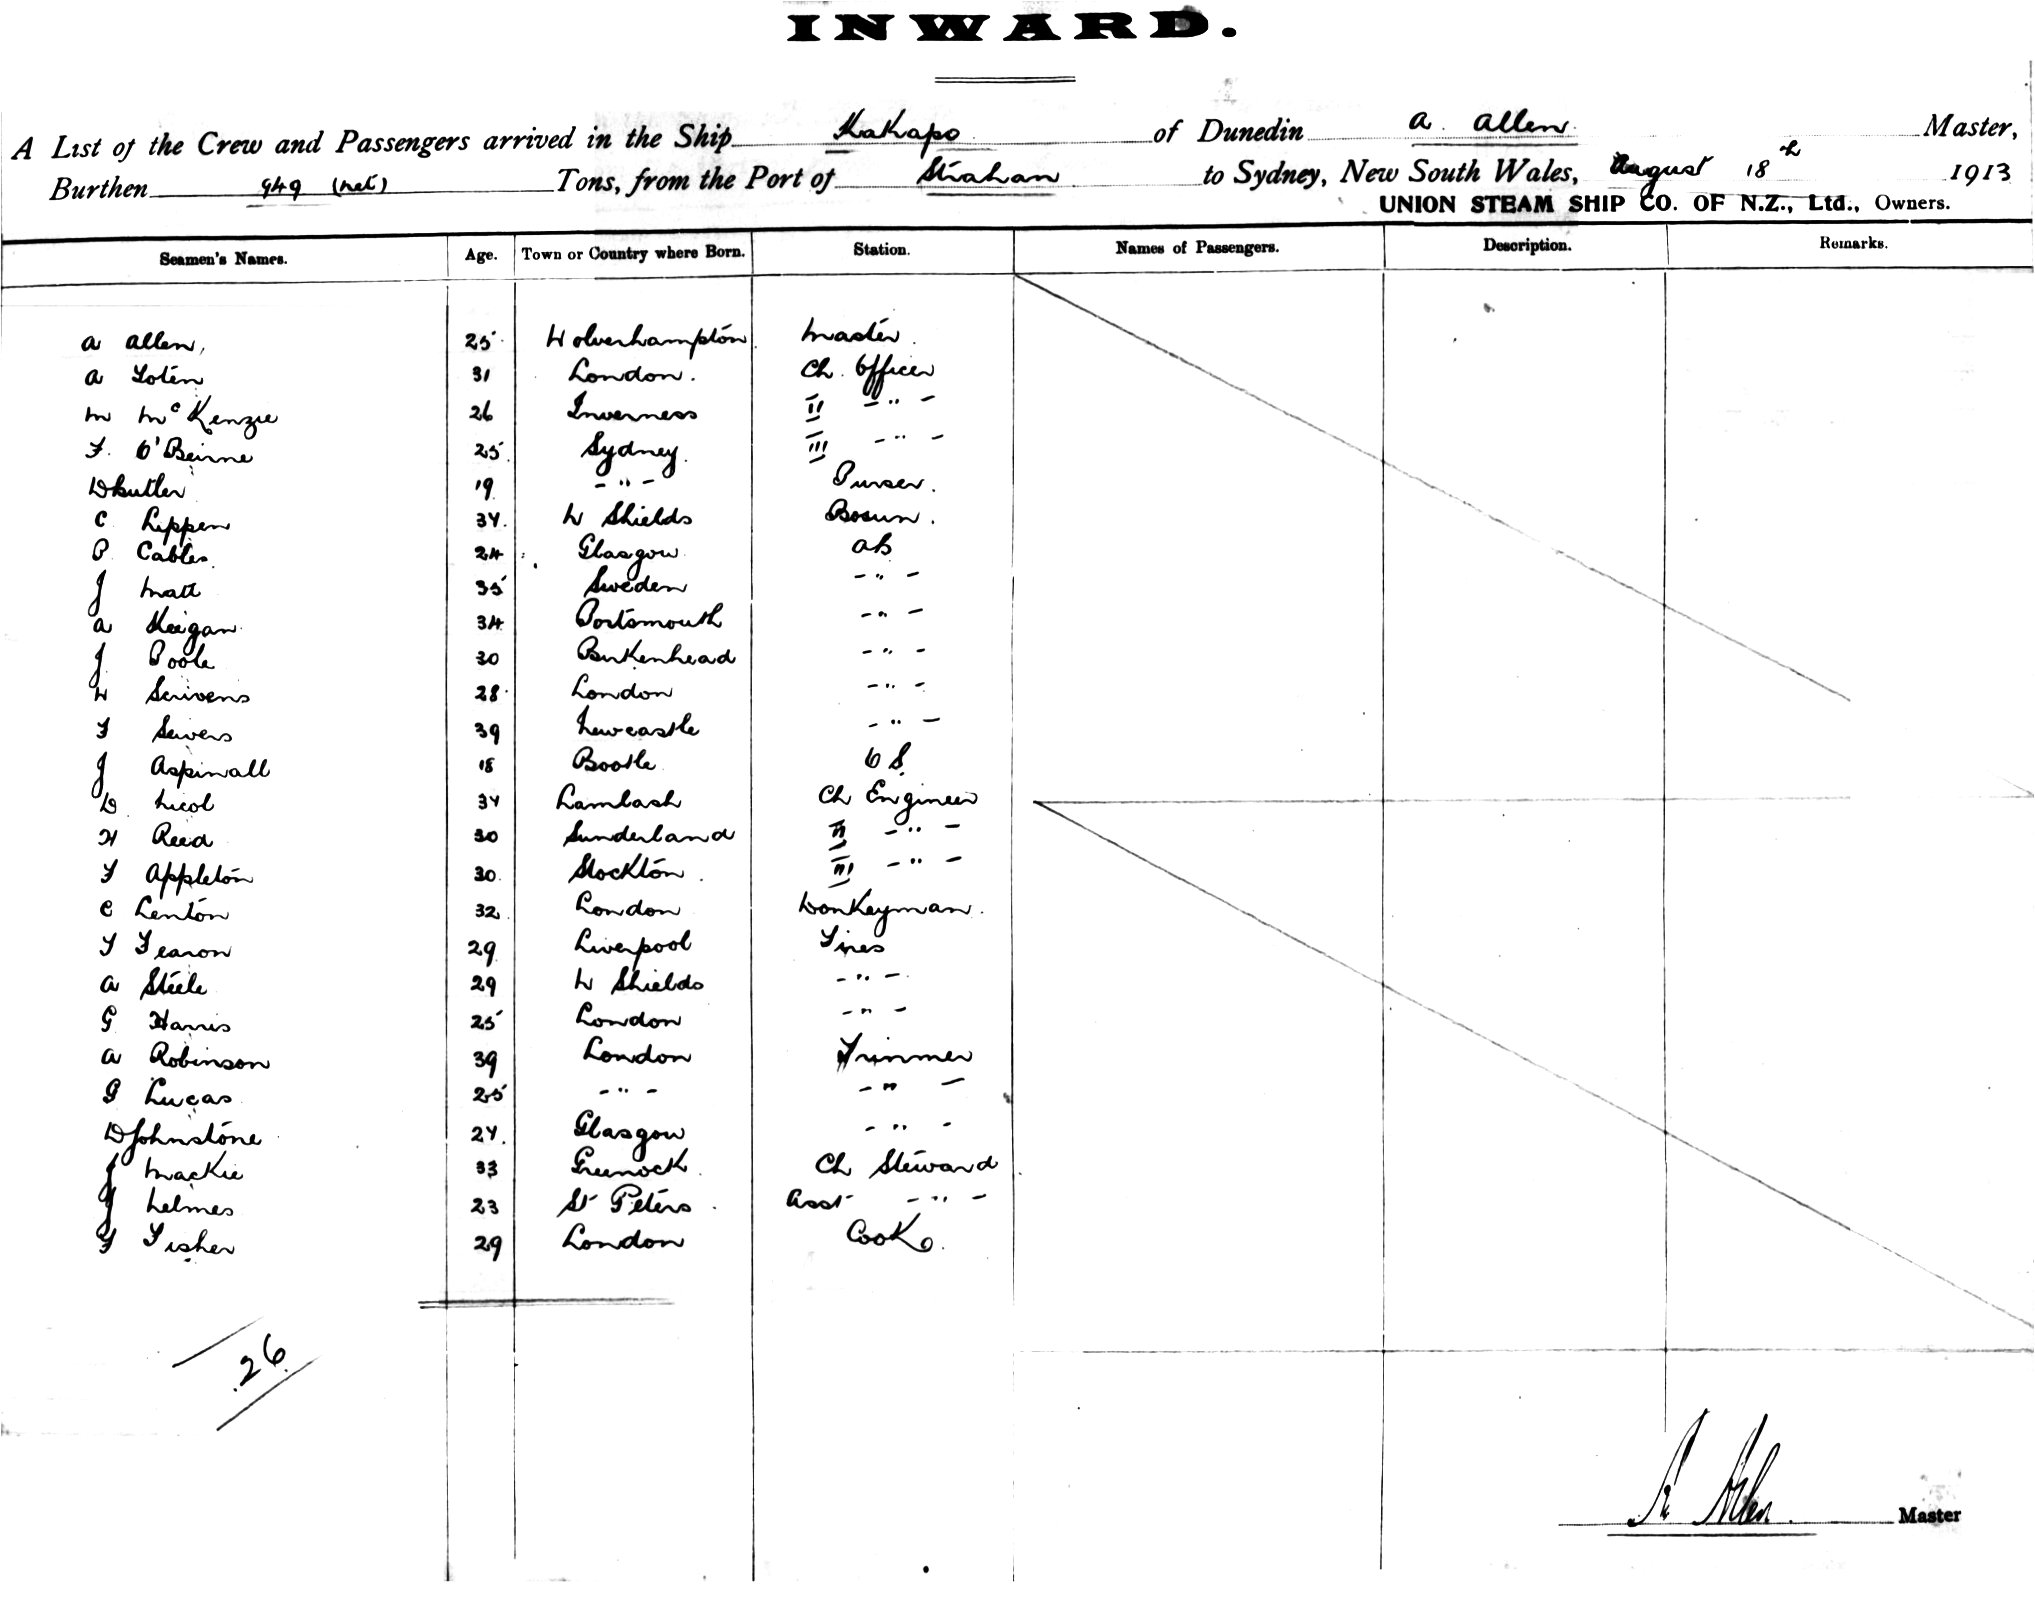 INWARD.
A List of the Crew and Passengers arrived in the Ship Kakapo of Dunedin A. Allen Master,
Burthen 949 (net) Tons, from the Port of Strahan to Sydney, New South Wales, August 18th 1913
UNION STEAM SHIP CO. OF N.Z., Ltd., Owners.
Seamen's Names. Age. Town or Country where Born. Station. Names of Passengers. Description. Remarks.
A Allen, 25 Wolverhampton Master.
A Loten 31 London. Ch. Officer
M McKenzie 26 Inverness II - " -
F. O'Beirne 25 Sydney. III - " -
D Butler 19 - " - Purser.
C Lippen 34. N Shields Bosun.
P Cables. 24 Glasgow AB
J Matt 35 Sweden - " -
A Keegan 34 Portsmouth - " -
J Poole 30 Birkenhead - " -
W Scrivens 28 London - " -
F Sewers 39 Newcastle - " -
J Aspinwall 18 Bootle O S.
D Nicol 34 Lamlash Ch Engineer
H Reed 30 Sunderland II - " -
F Appleton 30. Stockton. III - " -
C Lenton 32 London Donkeyman.
F Fearon 29 Liverpool Fires
A Steele 29 N Shields - " -
G Harris 25 London - " -
A Robinson 39 London Trimmer
G Lucas 25 - " - - " -
D Johnstone 24. Glasgow - " -
J Mackie 33 Greenock Ch Steward
J Nelmes 23 St Peters. Asst - " -
F Fisher 29 London Cook.
26
A. Allen. Master